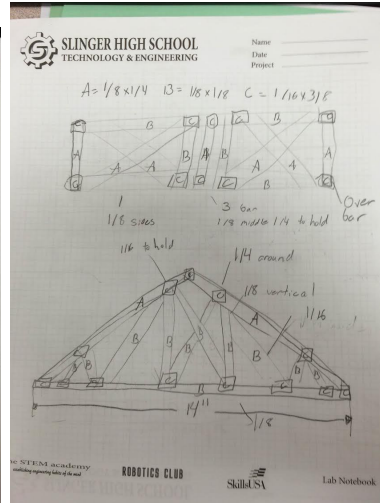 SLINGER HIGH SCHOOL
TECHNOLOGY & ENGINEERING
Name
Date
Project
A= 1/8 x 1/4 B= 1/8 x 1/8 C= 1/16 x 3/8
C B C C G G
A A A B A B A A A
G C C C B C
1/8 sides
3 bar
1/8 middle 1/4 to hold
Over
bar
1/16 to hold
1/4 around
1/8 vertical
1/16
A C A
B B B B B C
B B C B C B C C
14"
1/8
STEM academy
ROBOTICS CLUB
SkillsUSA
Lab Notebook